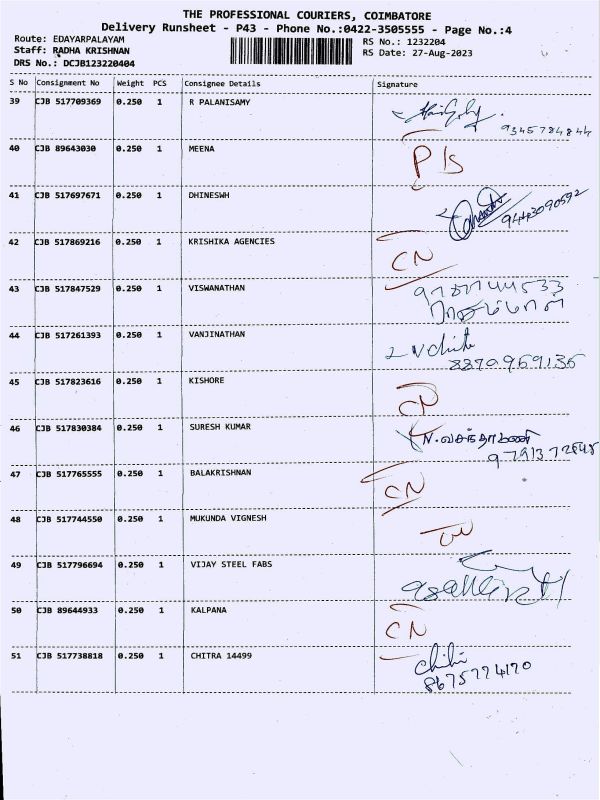 THE PROFESSIONAL COURIERS, COIMBATORE
Delivery Runsheet - P43 - Phone No.:0422-3505555 - Page No.:4
Route: EDAYARPALAYAM
Staff: RADHA KRISHNAN
DRS No.: DCJB123220404
RS No.: 1232204
RS Date: 27-Aug-2023
S No Consignment No Weight PCS Consignee Details Signature
39 CJB 517709369 0.250 1 R PALANISAMY
9345784844
40 CJB 89643030 0.250 1 MEENA P/s
41 CJB 517697671 0.250 1 DHINESWH
9443090592
42 CJB 517869216 0.250 1 KRISHIKA AGENCIES CN
43 CJB 517847529 0.250 1 VISWANATHAN
44 CJB 517261393 0.250 1 VANJINATHAN
8870969135
45 CJB 517823616 0.250 1 KISHORE CN
46 CJB 517830384 0.250 1 SURESH KUMAR N. வசந்தாமணி
47 CJB 517765555 0.250 1 BALAKRISHNAN CN
48 CJB 517744550 0.250 1 MUKUNDA VIGNESH
49 CJB 517796694 0.250 1 VIJAY STEEL FABS
50 CJB 89644933 0.250 1 KALPANA CN
51 CJB 517738818 0.250 1 CHITRA 14499
8675774170